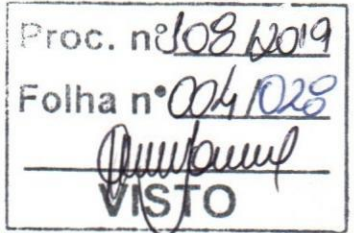 Proc. nº 108/2019
Folha nº 004/028
VISTO